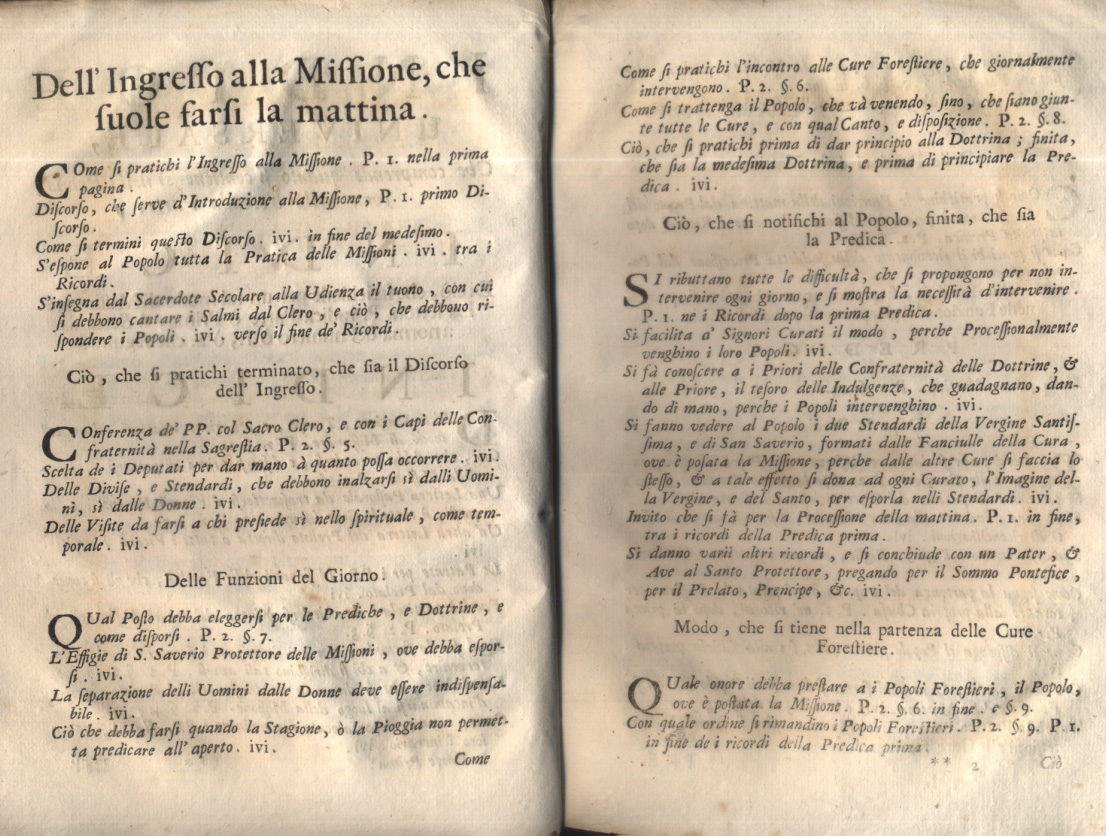 Dell' Ingreſſo alla Miſſione, che
ſuole farſi la mattina.
COme ſi pratichi l'Ingreſſo alla Miſſione. P. 1. nella prima
pagina.
Diſcorſo, che ſerve d'Introduzione alla Miſſione, P. 1. primo Di-
ſcorſo.
Come ſi termini queſto Diſcorſo. ivi. in fine del medeſimo.
S'eſpone al Popolo tutta la Pratica delle Miſſioni. ivi. tra i
Ricordi.
S'inſegna dal Sacerdote Secolare alla Udienza il tuono, con cui
ſi debbono cantare i Salmi dal Clero, e ciò, che debbono ri-
ſpondere i Popoli. ivi. verſo il fine de' Ricordi.
Ciò, che ſi pratichi terminato, che ſia il Diſcorſo
dell' Ingreſſo.
COnferenza de' PP. col Sacro Clero, e con i Capi delle Con-
fraternità nella Sagreſtia. P. 2. §. 5.
Scelta de i Deputati per dar mano à quanto poſſa occorrere. ivi.
Delle Diviſe, e Stendardi, che debbono inalzarſi sì dalli Uomi-
ni, sì dalle Donne. ivi.
Delle Viſite da farſi a chi preſiede sì nello ſpirituale, come tem-
porale. ivi.
Delle Funzioni del Giorno.
QUal Poſto debba eleggerſi per le Prediche, e Dottrine, e
come diſporſi. P. 2. §. 7.
L'Effigie di S. Saverio Protettore delle Miſſioni, ove debba eſpor-
ſi. ivi.
La ſeparazione delli Uomini dalle Donne deve eſſere indiſpenſa-
bile. ivi.
Ciò che debba farſi quando la Stagione, ò la Pioggia non permet-
ta predicare all' aperto. ivi.
Come
Come ſi pratichi l'incontro alle Cure Foreſtiere, che giornalmente
intervengono. P. 2. §. 6.
Come ſi trattenga il Popolo, che và venendo, ſino, che ſiano giun-
te tutte le Cure, e con qual Canto, e diſpoſizione. P. 2. §. 8.
Ciò, che ſi pratichi prima di dar principio alla Dottrina; finita,
che ſia la medeſima Dottrina, e prima di principiare la Pre-
dica. ivi.
Ciò, che ſi notifichi al Popolo, finita, che ſia
la Predica.
SI ributtano tutte le difficultà, che ſi propongono per non in-
tervenire ogni giorno, e ſi moſtra la neceſſità d'intervenire.
P. 1. ne i Ricordi dopo la prima Predica.
Si facilita a' Signori Curati il modo, perche Proceſſionalmente
venghino i loro Popoli. ivi.
Si fà conoſcere a i Priori delle Confraternità delle Dottrine, &
alle Priore, il teſoro delle Indulgenze, che guadagnano, dan-
do di mano, perche i Popoli intervenghino. ivi.
Si fanno vedere al Popolo i due Stendardi della Vergine Santiſ-
ſima, e di San Saverio, formati dalle Fanciulle della Cura,
ove è poſata la Miſſione, perche dalle altre Cure ſi faccia lo
ſteſſo, & a tale effetto ſi dona ad ogni Curato, l'Imagine del-
la Vergine, e del Santo, per eſporla nelli Stendardi. ivi.
Invito che ſi fà per la Proceſſione della mattina. P. 1. in fine,
tra i ricordi della Predica prima.
Si danno varii altri ricordi, e ſi conchiude con un Pater, &
Ave al Santo Protettore, pregando per il Sommo Pontefice,
per il Prelato, Prencipe, &c. ivi.
Modo, che ſi tiene nella partenza delle Cure
Foreſtiere.
QUale onore debba preſtare a i Popoli Foreſtieri, il Popolo,
ove è poſtata la Miſſione. P. 2. §. 6. in fine. e §. 9.
Con quale ordine ſi rimandino i Popoli Foreſtieri. P. 2. §. 9. P. 1.
in fine de i ricordi della Predica prima.
** 2 Ciò